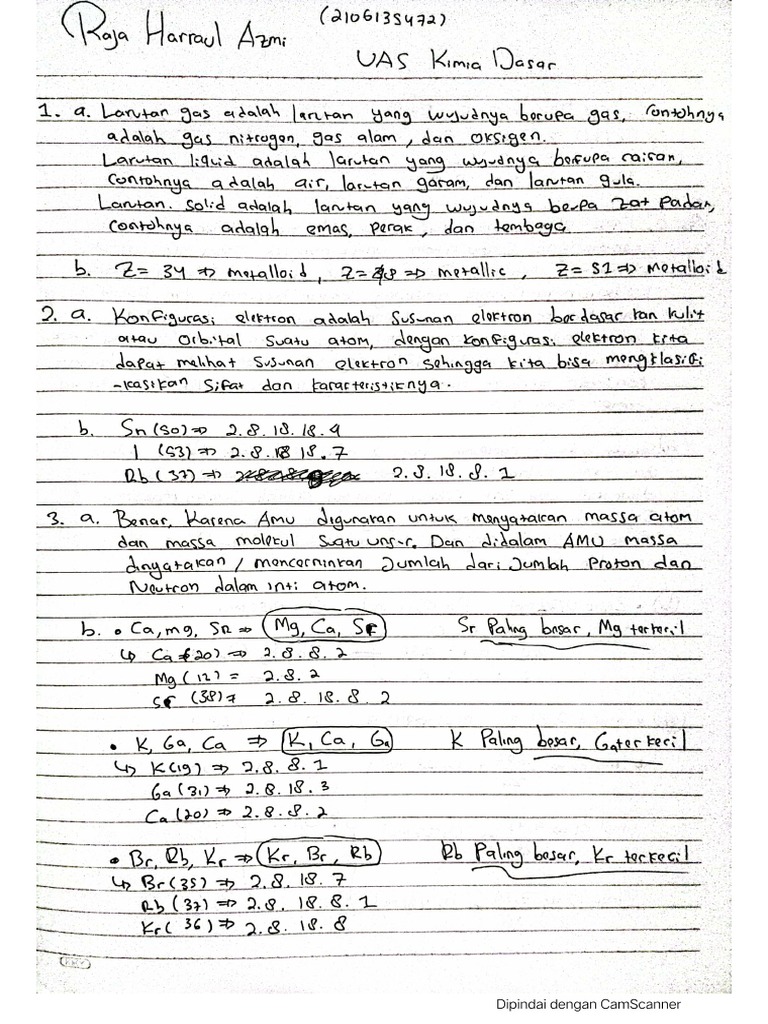 Raja Harraul Azmi (2106135472)
UAS Kimia Dasar
1. a. Larutan gas adalah larutan yang wujudnya berupa gas, Contohnya
adalah gas nitrogen, gas alam, dan oksigen.
Larutan liquid adalah larutan yang wujudnya berupa cairan,
Contohnya adalah air, larutan garam, dan larutan gula.
Larutan solid adalah larutan yang wujudnya berupa zat padat,
Contohnya adalah emas, perak, dan tembaga
b. Z = 34 => metalloid, Z = 48 => metallic, Z = 51 => metalloid
2. a. Konfigurasi elektron adalah susunan elektron berdasarkan kulit
atau orbital suatu atom, dengan konfigurasi elektron kita
dapat melihat susunan elektron sehingga kita bisa mengklasifi
-kasikan sifat dan karakteristiknya.
b. Sn (50) => 2.8.18.18.4
I (53) => 2.8.18 18.7
Rb (37) => 2.8.18.8.1
3. a. Benar, Karena Amu digunakan untuk menyatakan massa atom
dan massa molekul suatu unsur. Dan didalam AMU massa
dinyatakan / mencerminkan Jumlah dari Jumlah Proton dan
Neutron dalam inti atom.
b. • Ca, mg, Sr => Mg, Ca, Sr Sr Paling besar, Mg terkecil
↳ Ca (20) => 2.8.8.2
Mg (12) = 2.8.2
Sr (38) = 2.8.18.8 2
• K, Ga, Ca => K, Ca, Ga K Paling besar, Ga terkecil
↳ K (19) => 2.8.8.1
Ga (31) => 2.8.18.3
Ca (20) => 2.8.8.2
• Br, Rb, Kr => Kr, Br, Rb Rb Paling besar, Kr terkecil
↳ Br (35) => 2.8.18.7
Rb (37) => 2.8.18.8.1
Kr (36) => 2.8.18.8
Dipindai dengan CamScanner